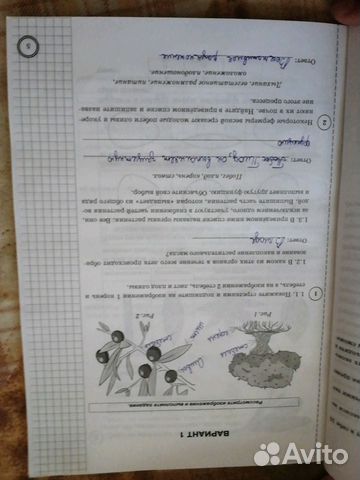 ВАРИАНТ 1
Рассмотрите изображения и выполните задания.
Рис. 1
Рис. 2
стебель
корень
стебель
лист
1
1.1. Покажите стрелками и подпишите на изображении 1 корень и
стебель, а на изображении 2 стебель, лист и плод оливы.
1.2. В каком из этих органов в течение всего лета происходит образование и накопление растительного масла?
Ответ: В плоде
1.3. В приведённом списке названы органы растения. Все они,
за исключением одного, участвуют в снабжении частей растения водой. Выпишите часть растения, которая «выпадает» из общего ряда
и выполняет другую функцию. Объясните свой выбор.
Плод, корень, ствол.
Ответ: Плод, он выполняет
функцию
2
Некоторые фермеры весной срезают молодые побеги оливы и укореняют их в почве. Найдите в приведённом списке и запишите название этого процесса.
Дыхание, вегетативное размножение, питание,
омоложение, плодоношение.
Ответ: Вегетативное размножение
5
Avito